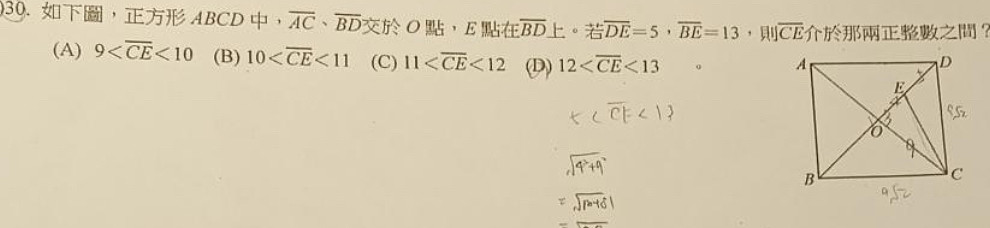 030. 如下圖，正方形 ABCD 中，AC、BD交於 O 點，E 點在BD上。若DE=5，BE=13，則CE介於那兩正整數之間？
(A) 9<CE<10 (B) 10<CE<11 (C) 11<CE<12 (D) 12<CE<13 。
A
D
E
9√2
O
9
B
C
9√2
< CE < 13
√4²+9²